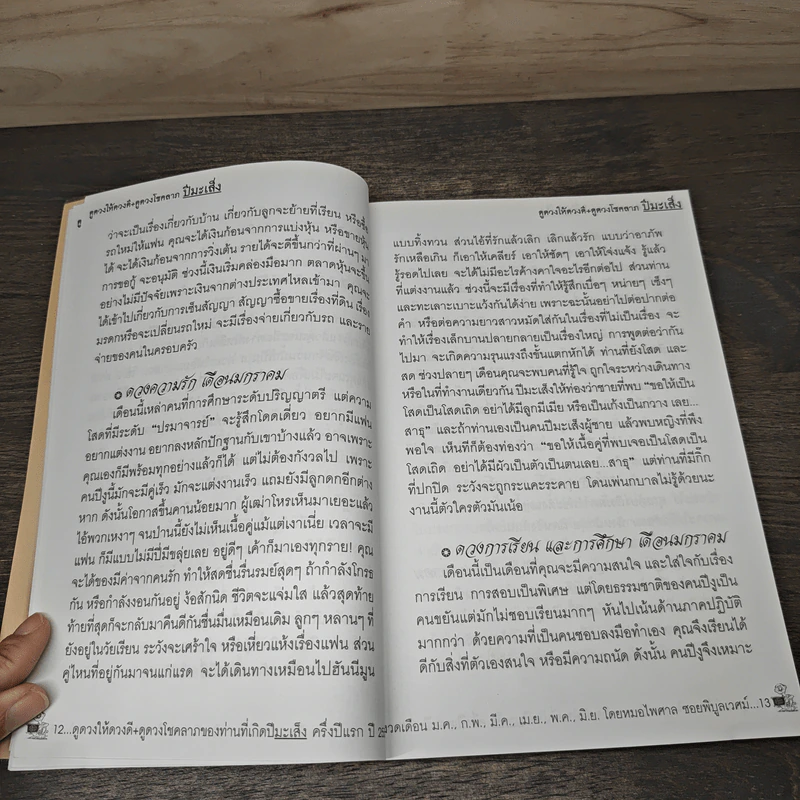 ดูดวงให้ดวงดี+ดูดวงโชคลาภ ปีมะเส็ง
ว่าจะเป็นเรื่องเกี่ยวกับบ้าน เกี่ยวกับลูกจะย้ายที่เรียน หรือซื้อ
รถใหม่ให้แฟน คุณจะได้เงินก้อนจากการแบ่งหุ้น หรือขายหุ้น
ได้ จะได้เงินก้อนจากการวิ่งเต้น รายได้จะดีขึ้นกว่าที่ผ่านๆ มา
การขอกู้ จะอนุมัติ ช่วงนี้เงินเริ่มคล่องมือมาก ตลาดหุ้นจะขึ้น
อย่างไม่มีปัจจัยเพราะเงินจากต่างประเทศไหลเข้ามา คุณจะ
ได้เข้าไปเกี่ยวกับการเซ็นสัญญา สัญญาซื้อขายเรื่องที่ดิน เรื่อง
มรดกหรือจะเปลี่ยนรถใหม่ จะมีเรื่องจ่ายเกี่ยวกับรถ และราย
จ่ายของคนในครอบครัว
ดวงความรัก เดือนมกราคม
เดือนนี้เหล่าคนที่การศึกษาระดับปริญญาตรี แต่ความ
โสดที่มีระดับ “ปรมาจารย์” จะรู้สึกโดดเดี่ยว อยากมีแฟน
อยากแต่งงาน อยากลงหลักปักฐานกับเขาบ้างแล้ว อาจเพราะ
คุณเองก็มีพร้อมทุกอย่างแล้วก็ได้ แต่ไม่ต้องกังวลไป เพราะ
คนปีงูนี้มักจะมีคู่เร็ว มักจะแต่งงานเร็ว แถมยังมีลูกดกอีกต่าง
หาก ดังนั้นโอกาสขึ้นคานน้อยมาก ผู้เฒ่าโหรเห็นมาเยอะแล้ว
ไอ้พวกเหงาๆ จนป่านนี้ยังไม่เห็นเนื้อคู่แม้แต่เงาเนี่ย เวลาจะมี
แฟน ก็มีแบบไม่มีปี่มีขลุ่ยเลย อยู่ดีๆ เค้าก็มาเองทุกราย! คุณ
จะได้ของมีค่าจากคนรัก ทำให้สดชื่นรื่นรมย์สุดๆ ถ้ากำลังโกรธ
กัน หรือกำลังงอนกันอยู่ ง้อสักนิด ชีวิตจะแจ่มใส แล้วสุดท้าย
ท้ายที่สุดก็จะกลับมาคืนดีกันชื่นมื่นเหมือนเดิม ลูกๆ หลานๆ ที่
ยังอยู่ในวัยเรียน ระวังจะเศร้าใจ หรือเหี่ยวแห้งเรื่องแฟน ส่วน
คู่ไหนที่อยู่กันมาจนแก่แรด จะได้เดินทางเหมือนไปฮันนีมูน
12...ดูดวงให้ดวงดี+ดูดวงโชคลาภของท่านที่เกิดปีมะเส็ง ครึ่งปีแรก ปี
ดูดวงให้ดวงดี+ดูดวงโชคลาภ ปีมะเส็ง
แบบทิ้งทวน ส่วนไอ้ที่รักแล้วเลิก เลิกแล้วรัก แบบว่าอาภัพ
รักเหลือเกิน ก็เอาให้เคลียร์ เอาให้ชัดๆ เอาให้โจ่งแจ้ง รู้แล้ว
รู้รอดไปเลย จะได้ไม่มีอะไรค้างคาใจอะไรอีกต่อไป ส่วนท่าน
ที่แต่งงานแล้ว ช่วงนี้จะมีเรื่องที่ทำให้รู้สึกเบื่อๆ หน่ายๆ เซ็งๆ
และทะเลาะเบาะแว้งกันได้ง่าย เพราะฉะนั้นอย่าไปต่อปากต่อ
คำ หรือต่อความยาวสาวหมัดใส่กันในเรื่องที่ไม่เป็นเรื่อง จะ
ทำให้เรื่องเล็กบานปลายกลายเป็นเรื่องใหญ่ การพูดต่อว่ากัน
ไปมา จะเกิดความรุนแรงถึงขั้นแตกหักได้ ท่านที่ยังโสด และ
สด ช่วงปลายๆ เดือนคุณจะพบคนที่รู้ใจ ถูกใจระหว่างเดินทาง
หรือในที่ทำงานเดียวกัน ปีมะเส็งให้ท่องว่าชายที่พบ “ขอให้เป็น
โสดเป็นโสดเถิด อย่าได้มีลูกมีเมีย หรือเป็นเก้งเป็นกวาง เลย...
สาธุ” และถ้าท่านเองเป็นคนปีมะเส็งผู้ชาย แล้วพบหญิงที่พึง
พอใจ เห็นทีก็ต้องท่องว่า “ขอให้เนื้อคู่ที่พบเจอเป็นโสดเป็น
โสดเถิด อย่าได้มีผัวเป็นตัวเป็นตนเลย...สาธุ” แต่ท่านที่มีกิ๊ก
ที่ปกปิด ระวังจะถูกระแคะระคาย โดนเฟนกบาลไม่รู้ด้วยนะ
งานนี้ตัวใครตัวมันเน้อ
ดวงการเรียน และการศึกษา เดือนมกราคม
เดือนนี้เป็นเดือนที่คุณจะมีความสนใจ และใส่ใจกับเรื่อง
การเรียน การสอบเป็นพิเศษ แต่โดยธรรมชาติของคนปีงูเป็น
คนขยันแต่มักไม่ชอบเรียนมากๆ หันไปเน้นด้านภาคปฏิบัติ
มากกว่า ด้วยความที่เป็นคนชอบลงมือทำเอง คุณจึงเรียนได้
ดีกับสิ่งที่ตัวเองสนใจ หรือมีความถนัด ดังนั้น คนปีงูจึงเหมาะ
งวดเดือน ม.ค., ก.พ., มี.ค., เม.ย., พ.ค., มิ.ย. โดยหมอไพศาล ซอยพิบูลเวศม์...13